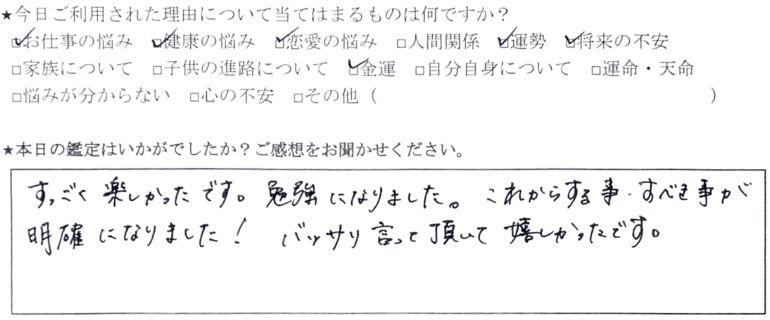 ★今日ご利用された理由について当てはまるものは何ですか？
☑お仕事の悩み ☑健康の悩み ☑恋愛の悩み □人間関係 ☑運勢 ☑将来の不安
□家族について □子供の進路について ☑金運 □自分自身について □運命・天命
□悩みが分からない □心の不安 □その他（ ）
★本日の鑑定はいかがでしたか？ご感想をお聞かせください。
すっごく楽しかったです。勉強になりました。これからする事・すべき事が
明確になりました！ バッサリ言って頂いて嬉しかったです。